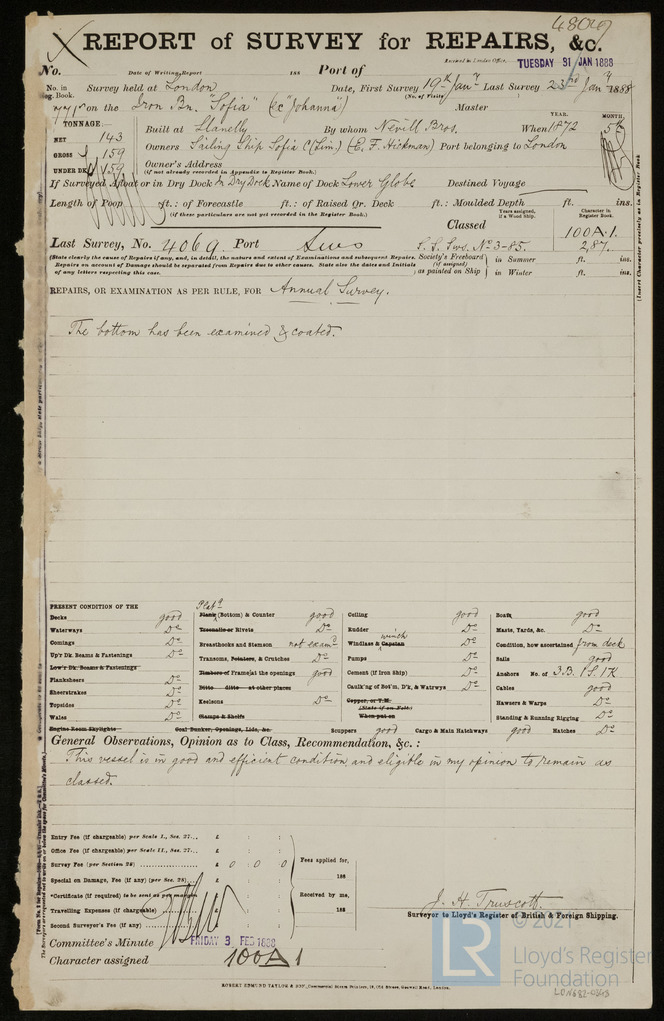 48049
REPORT of SURVEY for REPAIRS, &c.
Received in London Office, TUESDAY 31 JAN 1888
No. Date of Writing Report 188 Port of
No. in Reg. Book. Survey held at London Date, First Survey 19th Jany Last Survey 23rd Jany 1888
(No. of Visits)
771 on the Iron Bn. "Sofia" (ex "Johanna") Master
TONNAGE. YEAR. MONTH.
NET 143 Built at Llanelly By whom Nevill Bros. When 1872 5th
GROSS 159 Owners Sailing Ship Sofia C (Lim.) (E. F. Hickman) Port belonging to London
UNDER DK. 159 Owner's Address
(if not already recorded in Appendix to Register Book.)
If Surveyed Afloat or in Dry Dock In Dry Dock Name of Dock Lower Globe Destined Voyage
Length of Poop ft.: of Forecastle ft.: of Raised Qr. Deck ft.: Moulded Depth ft. ins.
(if these particulars are not yet recorded in the Register Book.)
Years assigned, if a Wood Ship. Character in Register Book.
Classed 100A.1.
Last Survey, No. 4069 Port Sws S.S. Sws. No. 3-85. 2,87.
(State clearly the cause of Repairs if any, and, in detail, the nature and extent of Examinations and subsequent Repairs. Society's Freeboard in Summer ft. ins.
Repairs on account of Damage should be separated from Repairs due to other causes. State also the dates and Initials (if assigned)
of any letters respecting this case. as painted on Ship in Winter ft. ins.
(Insert Character precisely as in Register Book
REPAIRS, OR EXAMINATION AS PER RULE, FOR Annual Survey.
The bottom has been examined & coated.
PRESENT CONDITION OF THE
Decks good
Waterways Do
Comings Do
Up'r Dk. Beams & Fastenings Do
Low'r Dk. Beams & Fastenings
Planksheers Do
Sheerstrakes Do
Topsides Do
Wales Do
Engine Room Skylights Coal Bunker, Openings, Lids, &c.
Platg
Plank (Bottom) & Counter good
Treenails or Rivets Do
Breasthooks and Stemson not examd
Transoms, Pointers, & Crutches Do
Timbers of Frame at the openings good
Ditto ditto at other places
Keelsons Do
Clamps & Shelfs
Scuppers good Cargo & Main Hatchways good Hatches Do
Ceiling good
Rudder Do
winch
Windlass & Capstan Do
Pumps Do
Cement (if Iron Ship) Do
Caulk'ng of Bot'm, D'k, & Watrwys Do
Copper, or Y.M.
(State if on Felt)
When put on
Boats good
Masts, Yards, &c. Do
Condition, how ascertained from deck
Sails good
Anchors No. of 3.B. 1S. 1K
Cables good
Hawsers & Warps Do
Standing & Running Rigging Do
General Observations, Opinion as to Class, Recommendation, &c. :
This vessel is in good and efficient condition, and eligible in my opinion to remain as
classed.
Entry Fee (if chargeable) per Scale I., Sec. 27... £ : :
Office Fee (if chargeable) per Scale II., Sec. 27... £ : :
Survey Fee (per Section 28) £ 0 : 0 : 0
Special on Damage, Fee (if any) (per Sec. 28) £ : :
*Certificate (if required) to be sent as per margin
Travelling Expenses (if chargeable) £ : :
Second Surveyor's Fee (if any) £ : :
Fees applied for,
188
Received by me,
188
J. H. Truscott
Surveyor to Lloyd's Register of British & Foreign Shipping.
Committee's Minute FRIDAY 3 FEB 1888
Character assigned 100A1
ROBERT EDMUND TAYLOR & SON, Commercial Steam Printers, 19, Old Street, Goswell Road, London.
© 2021
LR
Lloyd's Register
Foundation
LON682-0363